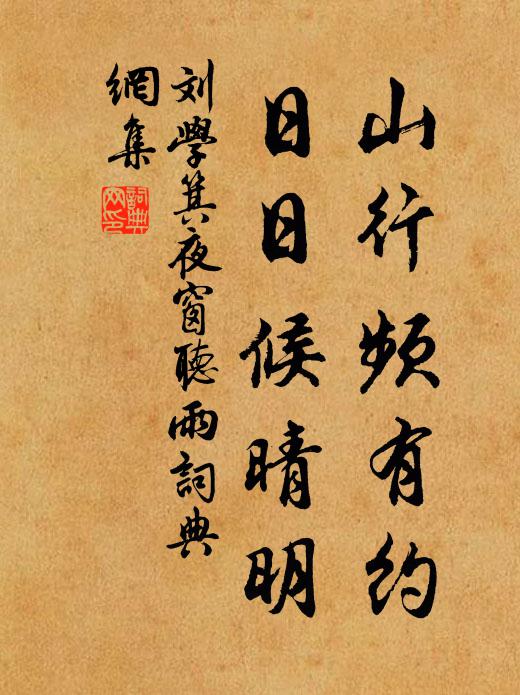 山行頻有約
日日候晴明
刘學箕夜窗聽雨詞典
網集
詞典
网印